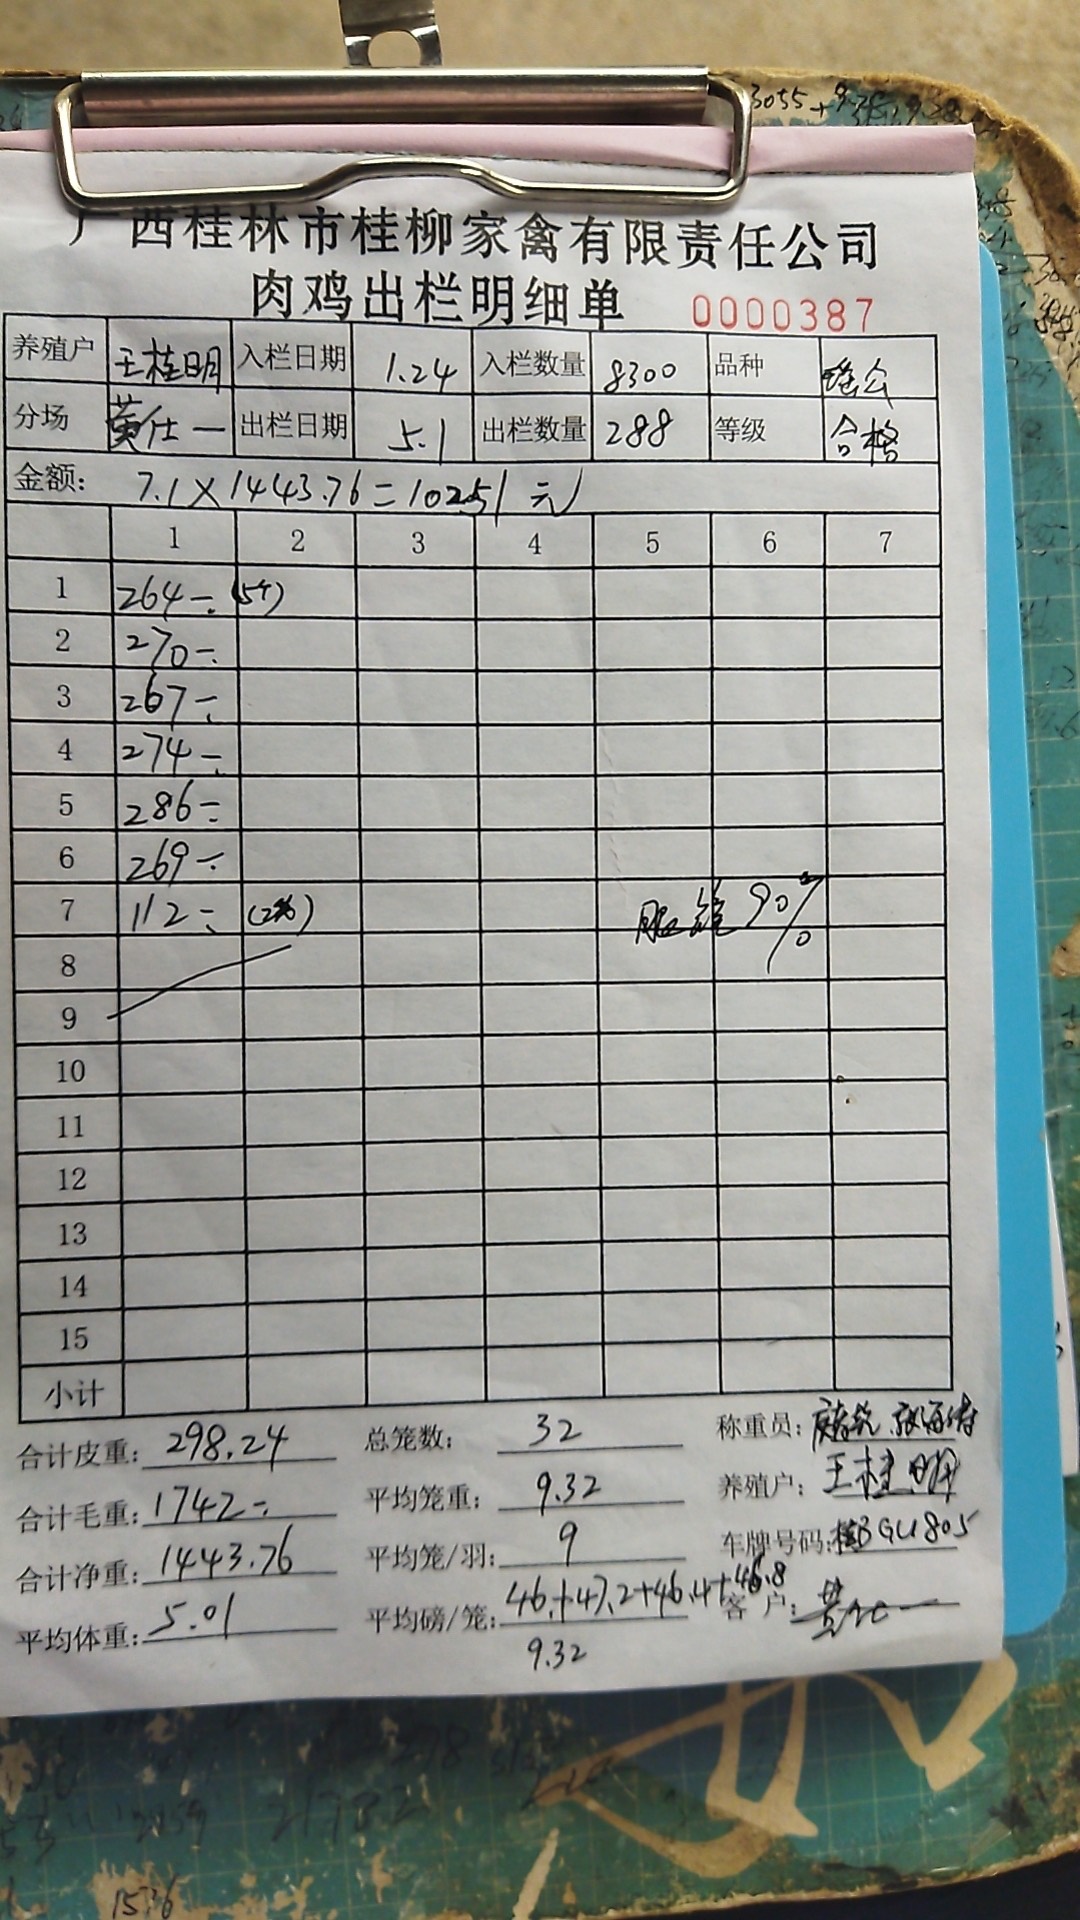 广西桂林市桂柳家禽有限责任公司
肉鸡出栏明细单 0000387
养殖户 王桂明 入栏日期 1.24 入栏数量 8300 品种 瑶公
分场 黄仕一 出栏日期 5.1 出栏数量 288 等级 合格
金额: 7.1×1443.76=10251元
1 2 3 4 5 6 7
1 264÷ (5个)
2 270÷
3 267÷
4 274÷
5 286÷
6 269÷
7 112÷ 90%
8
9
10
11
12
13
14
15
小计
合计皮重: 298.24 总笼数: 32 称重员:
合计毛重: 1742÷ 平均笼重: 9.32 养殖户: 王桂明
合计净重: 1443.76 平均笼/羽: 9 车牌号码:
平均体重: 5.01 平均磅/笼: 46.+47.2+46.4+46.8 客户:
9.32
1536